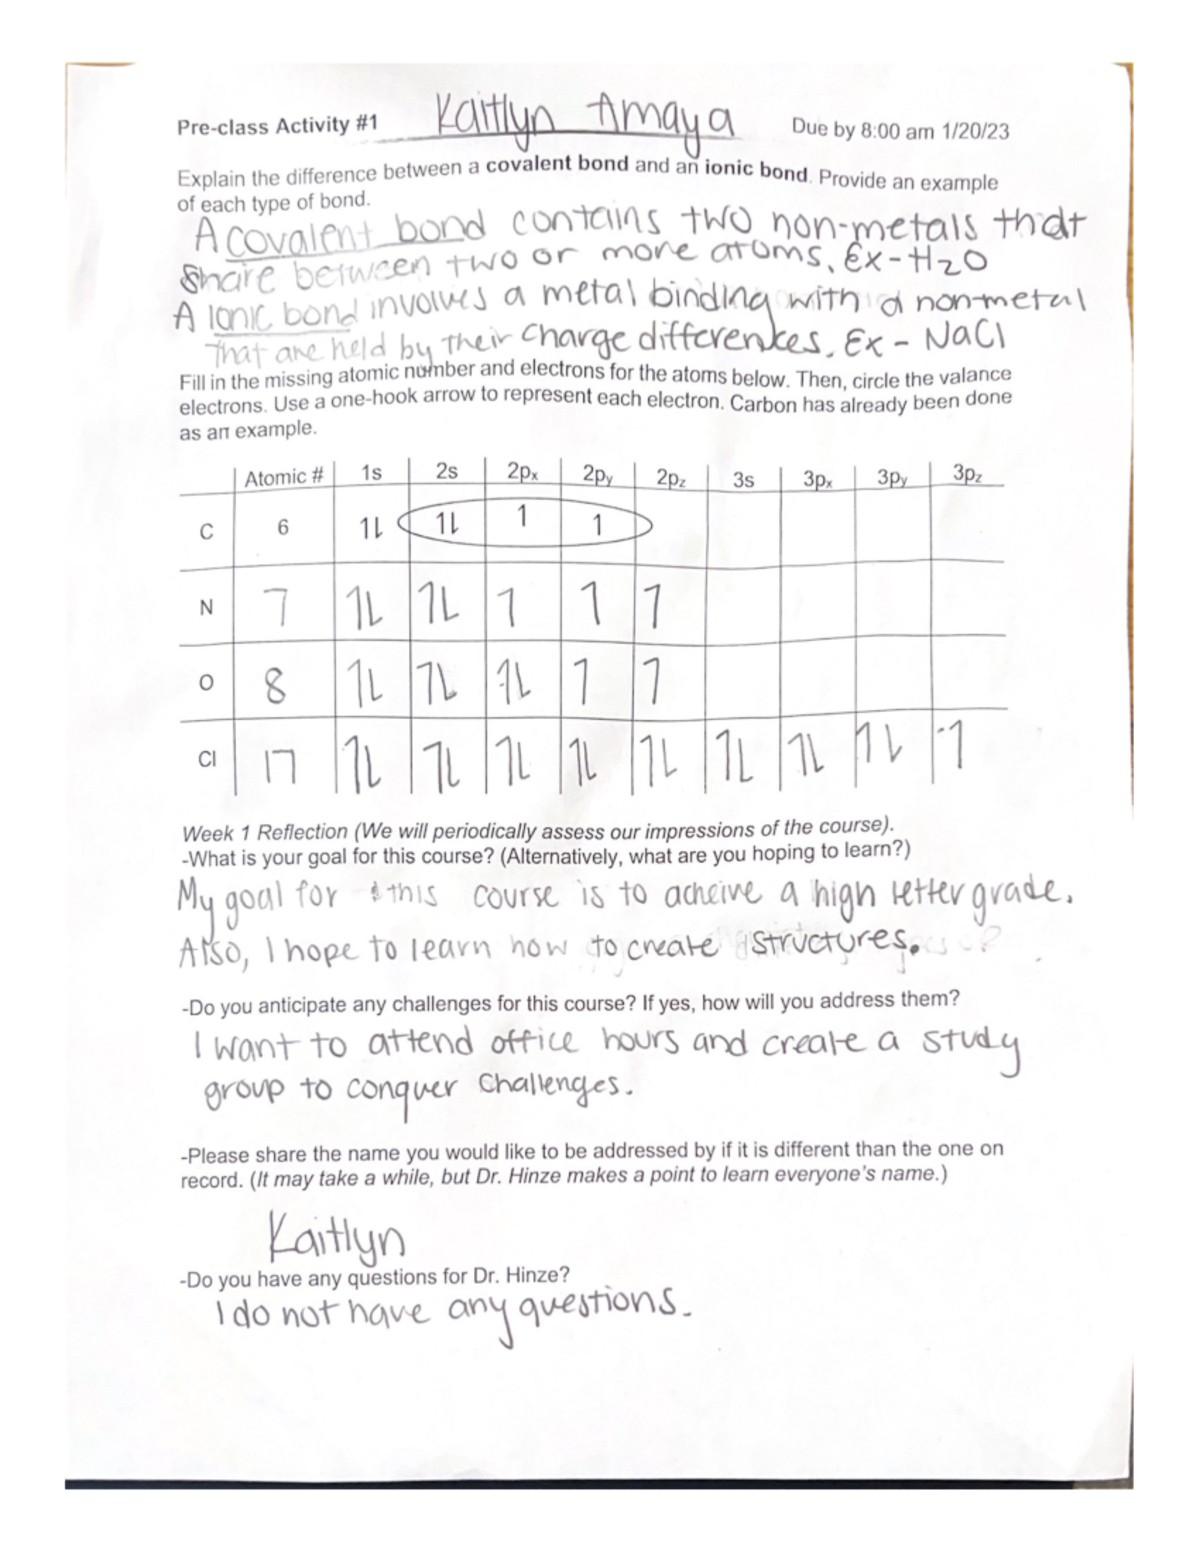 Pre-class Activity #1 Kaitlyn Amaya Due by 8:00 am 1/20/23
Explain the difference between a covalent bond and an ionic bond. Provide an example
of each type of bond.
A covalent bond contains two non-metals that
share between two or more atoms. Ex - H2O
A ionic bond involves a metal binding with a non-metal
that are held by their charge differences. Ex - NaCl
Fill in the missing atomic number and electrons for the atoms below. Then, circle the valance
electrons. Use a one-hook arrow to represent each electron. Carbon has already been done
as an example.
Atomic # 1s 2s 2px 2py 2pz 3s 3px 3py 3pz
C 6 1l 1l 1 1
N 7 1l 1l 1 1 1
O 8 1l 1l 1l 1 1
Cl 17 1l 1l 1l 1l 1l 1l 1l 1l 1
Week 1 Reflection (We will periodically assess our impressions of the course).
-What is your goal for this course? (Alternatively, what are you hoping to learn?)
My goal for this course is to acheive a high letter grade.
Also, I hope to learn how to create structures.
-Do you anticipate any challenges for this course? If yes, how will you address them?
I want to attend office hours and create a study
group to conquer challenges.
-Please share the name you would like to be addressed by if it is different than the one on
record. (It may take a while, but Dr. Hinze makes a point to learn everyone's name.)
Kaitlyn
-Do you have any questions for Dr. Hinze?
I do not have any questions.